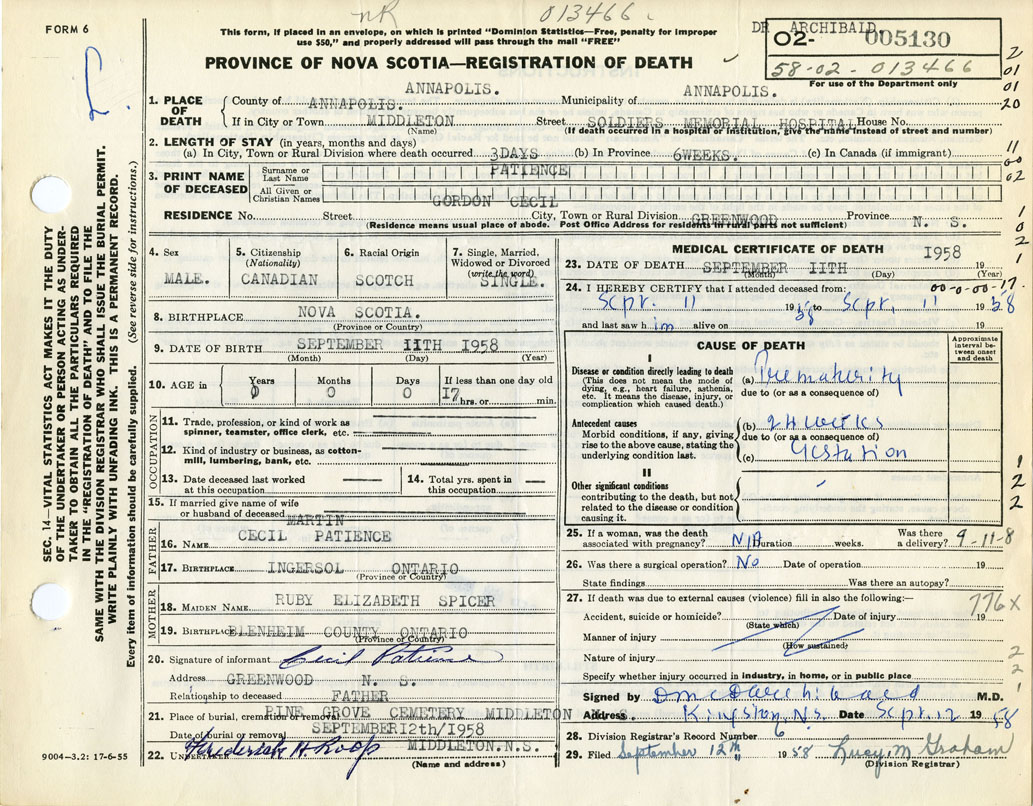 nR 013466
FORM 6
This form, if placed in an envelope, on which is printed "Dominion Statistics—Free, penalty for improper
use $50," and properly addressed will pass through the mail "FREE"
DR ARCHIBALD.
02- 005130
58-02-013466
For use of the Department only
PROVINCE OF NOVA SCOTIA—REGISTRATION OF DEATH
2
01
01
20
11
00
02
1
0
2
1
1. PLACE OF DEATH
County of ANNAPOLIS. ANNAPOLIS. Municipality of ANNAPOLIS.
If in City or Town MIDDLETON Street SOLDIERS MEMORIAL HOSPITAL House No.
(Name) (If death occurred in a hospital or institution, give the name instead of street and number)
2. LENGTH OF STAY (in years, months and days)
(a) In City, Town or Rural Division where death occurred 3DAYS (b) In Province 6WEEKS. (c) In Canada (if immigrant)
3. PRINT NAME OF DECEASED
Surname or Last Name PATIENCE
All Given or Christian Names GORDON CECIL
RESIDENCE No. Street City, Town or Rural Division GREENWOOD Province N. S.
(Residence means usual place of abode. Post Office Address for residents in rural parts not sufficient)
4. Sex MALE.
5. Citizenship (Nationality) CANADIAN
6. Racial Origin SCOTCH
7. Single, Married, Widowed or Divorced (write the word) SINGLE.
8. BIRTHPLACE NOVA SCOTIA.
(Province or Country)
9. DATE OF BIRTH SEPTEMBER 11TH 1958
(Month) (Day) (Year)
10. AGE in Years 0 Months 0 Days 0 If less than one day old 17 hrs. or min.
OCCUPATION
11. Trade, profession, or kind of work as spinner, teamster, office clerk, etc.
12. Kind of industry or business, as cotton-mill, lumbering, bank, etc.
13. Date deceased last worked at this occupation
14. Total yrs. spent in this occupation
15. If married give name of wife or husband of deceased
FATHER
MARTIN
16. NAME CECIL PATIENCE
17. BIRTHPLACE INGERSOL ONTARIO
(Province or Country)
MOTHER
18. MAIDEN NAME RUBY ELIZABETH SPICER
19. BIRTHPLACE BLENHEIM COUNTY ONTARIO
(Province or Country)
20. Signature of informant Cecil Patience
Address GREENWOOD N. S.
Relationship to deceased FATHER
21. Place of burial, cremation or removal PINE GROVE CEMETERY MIDDLETON N. S.
Date of burial or removal SEPTEMBER12th/1958
22. UNDERTAKER Frederick H. Roop MIDDLETON.N.S.
(Name and address)
MEDICAL CERTIFICATE OF DEATH
23. DATE OF DEATH SEPTEMBER 11TH 1958 19
(Month) (Day) (Year)
24. I HEREBY CERTIFY that I attended deceased from: 00-0-00-17.
Sept. 11 1958 to Sept. 11 1958
and last saw him alive on 19
CAUSE OF DEATH
Approximate interval between onset and death
I
Disease or condition directly leading to death
(This does not mean the mode of dying, e.g., heart failure, asthenia, etc. It means the disease, injury, or complication which caused death.)
(a) Prematurity
due to (or as a consequence of)
Antecedent causes
Morbid conditions, if any, giving rise to the above cause, stating the underlying condition last.
(b) 24 weeks
due to (or as a consequence of)
(c) Gestation
II
Other significant conditions
contributing to the death, but not related to the disease or condition causing it.
1
2
2
25. If a woman, was the death associated with pregnancy? N/A Duration weeks. Was there a delivery? 9-11-8
26. Was there a surgical operation? No Date of operation 19
State findings Was there an autopsy?
27. If death was due to external causes (violence) fill in also the following:— 776X
Accident, suicide or homicide? Date of injury 19
(State which)
Manner of injury
(How sustained)
Nature of injury 2
Specify whether injury occurred in industry, in home, or in public place 2
1
Signed by D McD Archibald M.D.
Address Kingston, N.S. Date Sept. 12 1958
28. Division Registrar's Record Number 6
29. Filed September 12th 1958 Lucy M Graham
(Division Registrar)
SEC. 14—VITAL STATISTICS ACT MAKES IT THE DUTY
OF THE UNDERTAKER OR PERSON ACTING AS UNDER-
TAKER TO OBTAIN ALL THE PARTICULARS REQUIRED
IN THE "REGISTRATION OF DEATH" AND TO FILE THE
SAME WITH THE DIVISION REGISTRAR WHO SHALL ISSUE THE BURIAL PERMIT.
WRITE PLAINLY WITH UNFADING INK. THIS IS A PERMANENT RECORD.
Every item of information should be carefully supplied. (See reverse side for instructions.)
9004—3.2: 17-6-55